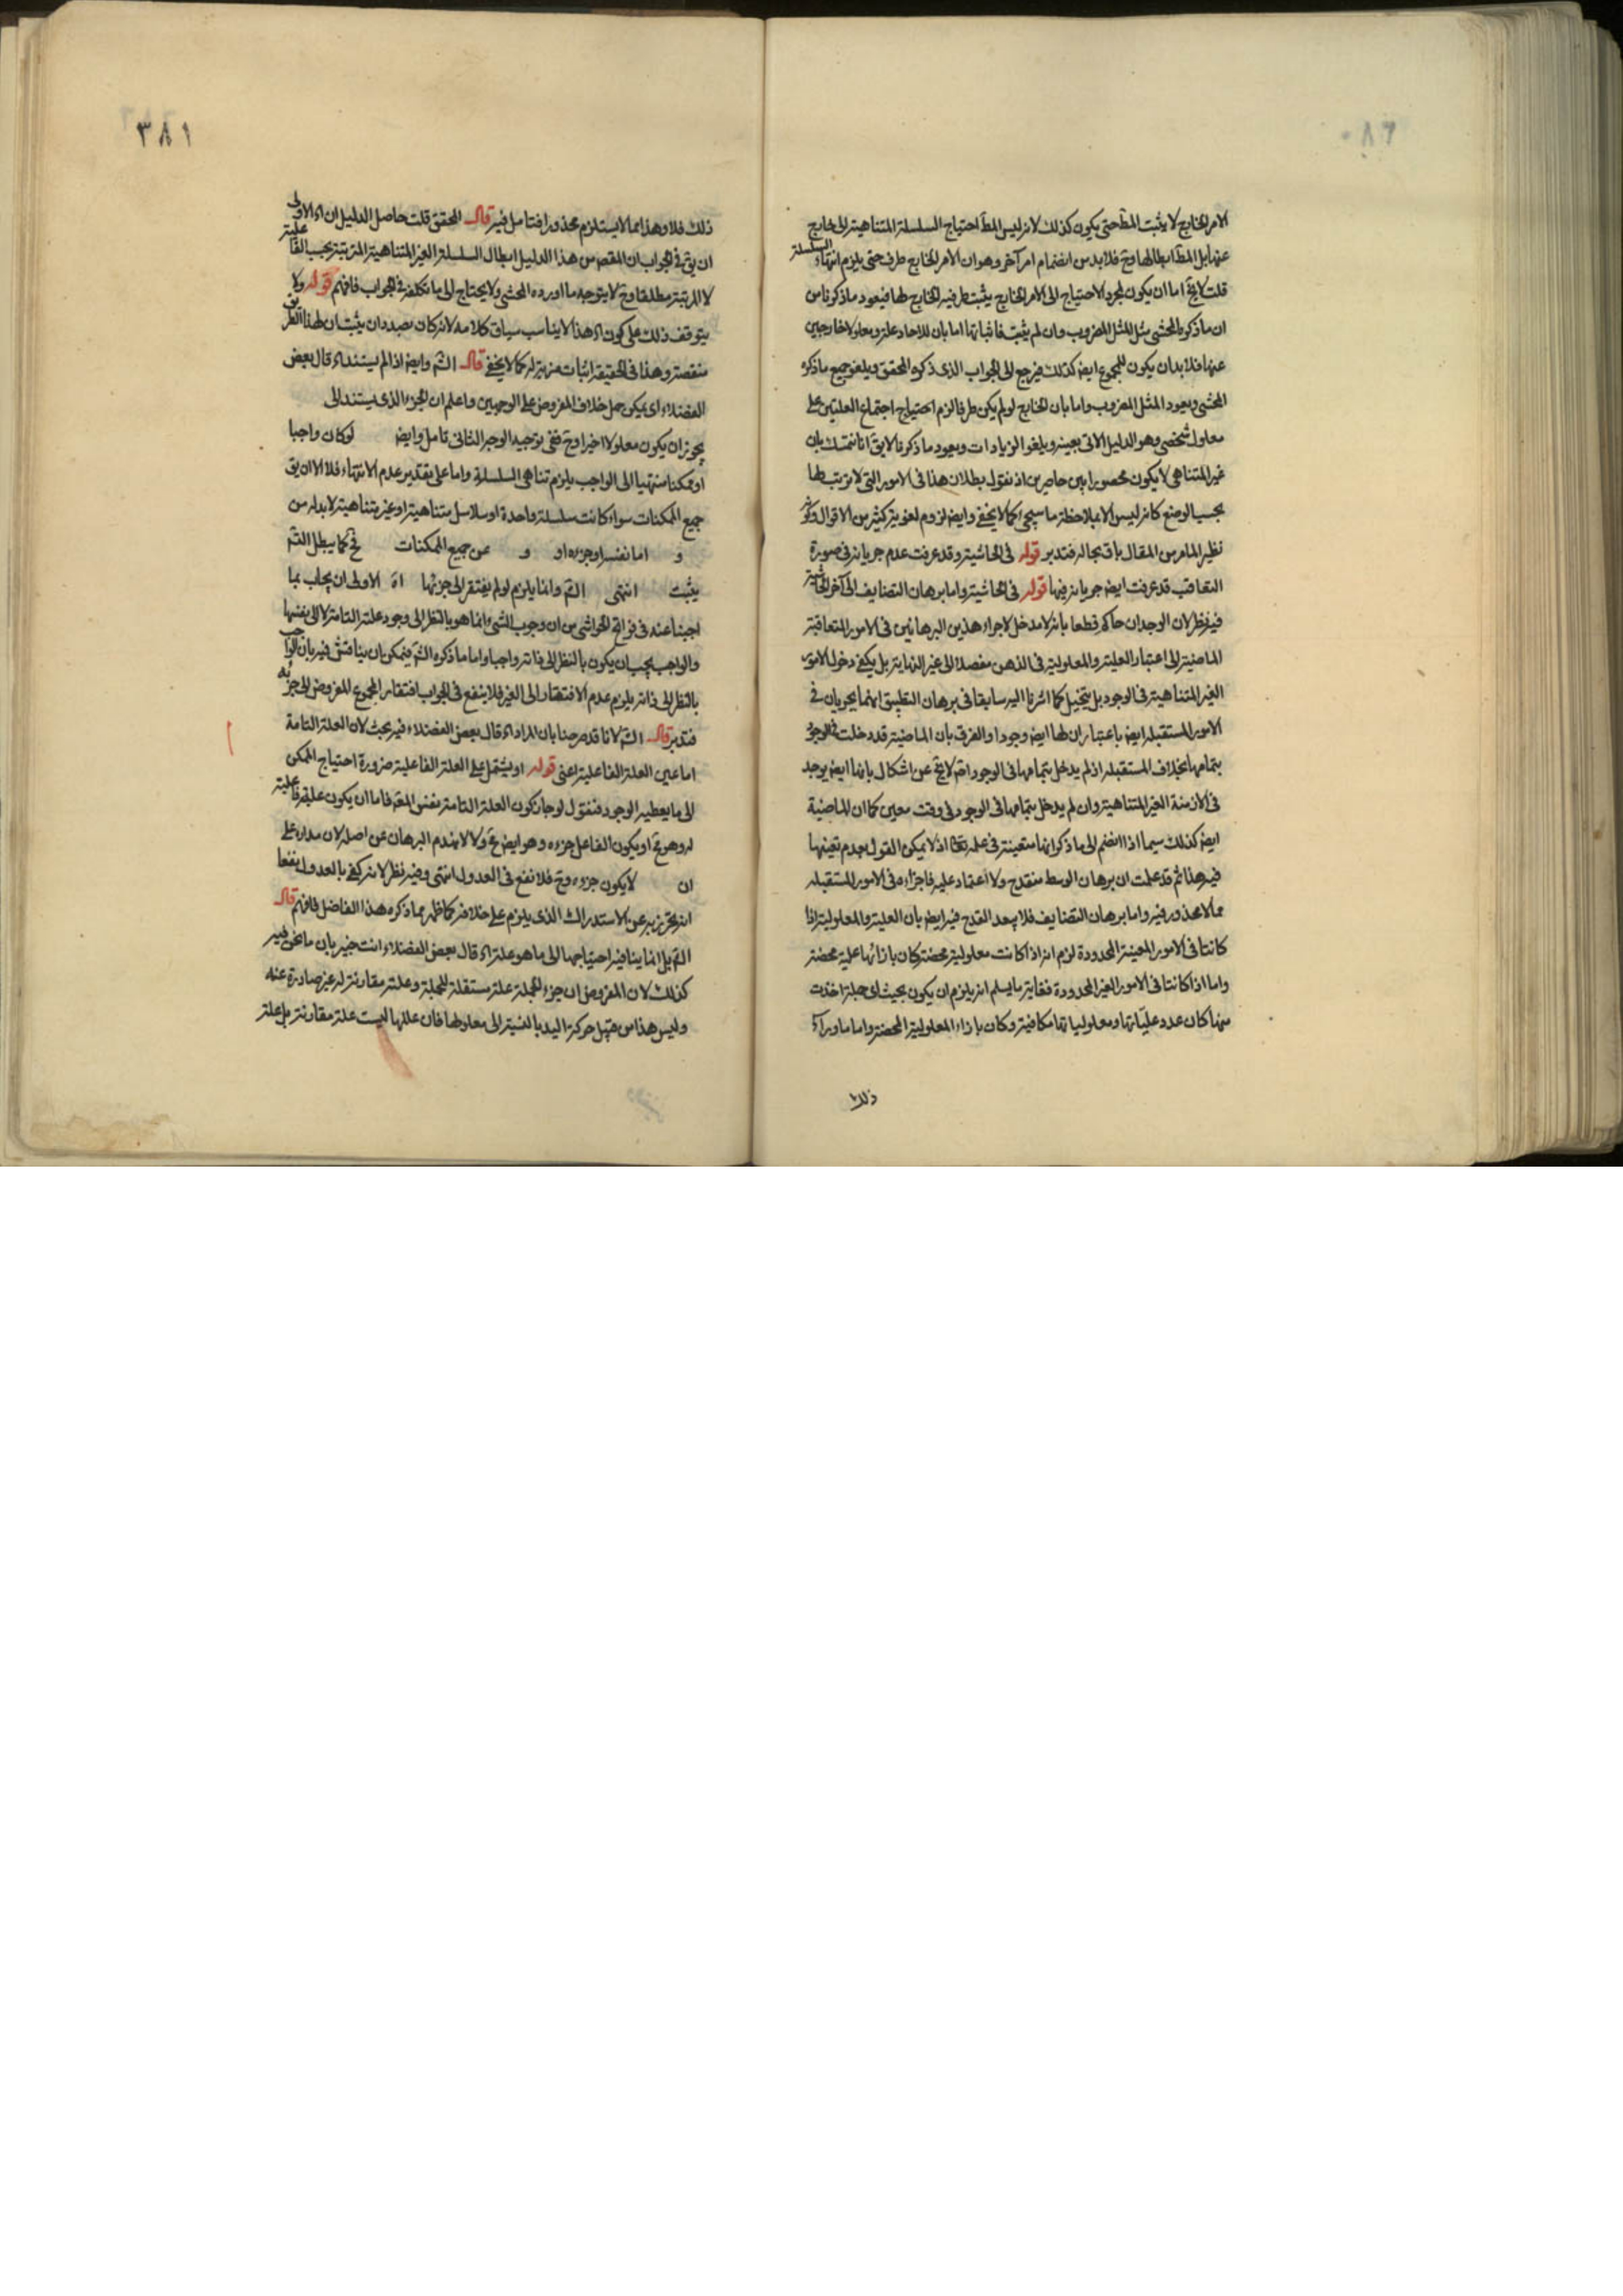 الامر الخارج لا يثبت المط حتى يكون كذلك لانه ليس المط احتياج السلسلة المتناهية الى خارج
عنها بل المط ابطالها وح فلا بد من انضمام امر آخر وهو ان الامر الخارج طرف حتى يلزم انتهاء السلسلة
قلت لا يخ اما ان يكون لمجرد الاحتياج الى الامر الخارج يثبت طرفية الخارج لها فيعود ما ذكرنا من
ان ما ذكره المحشى مثل المثل المضروب وان لم يثبت فاثباتها اما بان للاحاد علة ومعلولا خارجين
عنها فلا بد ان يكون للمجموع ايض كذلك فيرجع الى الجواب الذى ذكره المحقق ويلغو جميع ما ذكره
المحشى ويعود المثل المضروب واما بان الخارج لو لم يكن طرفا لزم احتياج اجتماع العلتين على
معلول شخصى وهو الدليل الاتى بعينه ويلغو الزيادات ويعود ما ذكرنا لا يق انا نتمسك بان
غير المتناهى لا يكون محصورا بين حاصرين اذ نقول بطلان هذا فى الامور التى لا ترتب لها
بحسب الوضع كانه ليس الا بملاحظة ما سيجئ كما لا يخفى وايض لزوم لغوية كثير من الاقوال
نظير المامر من المقال باق بحاله فتدبر قوله فى الحاشية وقد عرفت عدم جريانه فى صورة
التعاقب قد عرفت ايض جريانه فيها قوله فى الحاشية واما برهان التضايف الى آخر الحاشية
فيه نظر لان الوجدان حاكم قطعا بانه لا مدخل لاجراء هذين البرهانين فى الامور المتعاقبة
الماضية الى اعتبار العلية والمعلولية فى الذهن مفصلا الى غير النهاية بل يكفى دخول الامور
الغير المتناهية فى الوجود بل يتخيل كما اشرنا اليه سابقا فى برهان التطبيق انهما يجريان فى
الامور المستقبلة ايض باعتبار ان لها ايض وجودا والفرق بان الماضية قد دخلت فى الوجود
بتمامها بخلاف المستقبلة اذ لم يدخل بتمامها فى الوجود اقم لا يخ عن اشكال بانها ايض يوجد
فى الازمنة الغير المتناهية وان لم يدخل بتمامها فى الوجود فى وقت معين كما ان الماضية
ايض كذلك سيما اذا انضم الى ما ذكر انها متعينة فى علمه تعا اذ لا يمكن القول بعدم تعينها
فيه هذا ثم قد علمت ان برهان الوسط منقدح ولا اعتماد عليه فاجزاءه فى الامور المستقبلة
مما لا محذور فيه واما برهان التضايف فلا يبعد القدح فيه ايض بان العلية والمعلولية اذا
كانتا فى الامور المعينة المحدودة لزم انه اذا كانت معلولية محضة كان بازائها علية محضة
واما اذا كانتا فى الامور الغير المحدودة فغاية ما يسلم انه يلزم ان يكون بحيث اى جملة اخذت
منها كان عدد علياتها ومعلولياتها مكافية وكان بازاء المعلولية المحضة واما ما وراء
ذلك
٣٨١
ذلك فلا وهذا مما لا يستلزم محذورا فتامل فيه قال المحقق قلت حاصل الدليل ان اه الاولى
ان يق فى الجواب ان المقص من هذا الدليل ابطال السلسلة الغير المتناهية المترتبة بحسب الفاعلية
لا المرتبة مطلقا وح لا يتوجه ما اورده المحشى ولا يحتاج الى ما تكلفه فى الجواب فافهم قوله ولا
يتوقف ذلك على كون اه هذا لا يناسب سياق كلامه لانه كان بصدد ان يثبت ان لهذا الطريق
منقصة وهذا فى الحقيقة اثبات مزية له كما لا يخفى قال الش وايض اذا لم يستند اه قال بعض
الفضلاء اى يمكن حمل خلاف المفروض على الوجهين واعلم ان الجزء الذى يستند الى
يجوز ان يكون معلولا اخيرا وح ففى توجيه الوجه الثانى تامل وايض لو كان واجبا
او ممكنا منتهيا الى الواجب يلزم تناهى السلسلة واما على تقدير عدم الانتهاء فلا الا ان يق
جميع الممكنات سواء كانت سلسلة واحدة او سلاسل متناهية او غير متناهية لا بد له من
و اما نفسه او جزءه او و عن جميع الممكنات فح كما يبطل الش
يثبت انتهى الش وانما يلزم لو لم يفتقر الى جزئها اه الاولى ان يجاب بما
اجبنا عنه فى فواتح الحواشى من ان وجوب الشئ انما هو بالنظر الى وجود علته التامة لا الى نفسها
والواجب يجب ان يكون بالنظر الى ذاته واجبا واما ما ذكره الش فيمكن ان يناقش فيه بان الواجب
بالنظر الى ذاته يلزم عدم الافتقار الى الغير فلا ينفع فى الجواب افتقار المجموع المفروض الى جزئه
فتدبر قال الش لانا قد صرحنا بان المراد اه قال بعض الفضلاء فيه بحث لان العلة التامة
اما عين العلة الفاعلية اعنى قوله او يشتمل على العلة الفاعلية ضرورة احتياج الممكن
الى ما يعطيه الوجود فنقول لو جاز كون العلة التامة نفس المقم فاما ان يكون علية فاعلية
له وهو مح او يكون الفاعل جزءه وهو ايض مح ولا لانهدم البرهان عن اصله لان مداره على
ان لا يكون جزءه وح فلا نفع فى العدول انتهى وفيه نظر لانه كفى بالعدول نفعا
انه يحترز به عن الاستدراك الذى يلزم على خلافه كما ظهر مما ذكره هذا الفاضل فافهم قال
الش بل انما ينافيه احتياجها الى ما هو علة اه قال بعض الفضلاء انت خبير بان ما نحن فيه
كذلك لان المفروض ان جزء الجملة علة مستقلة للجملة وعلته مقارنة له غير صادرة عنه
وليس هذا من قبيل حركة اليد بالنسبة الى معلولها فان عللها ليست علة مقارنة بل علة